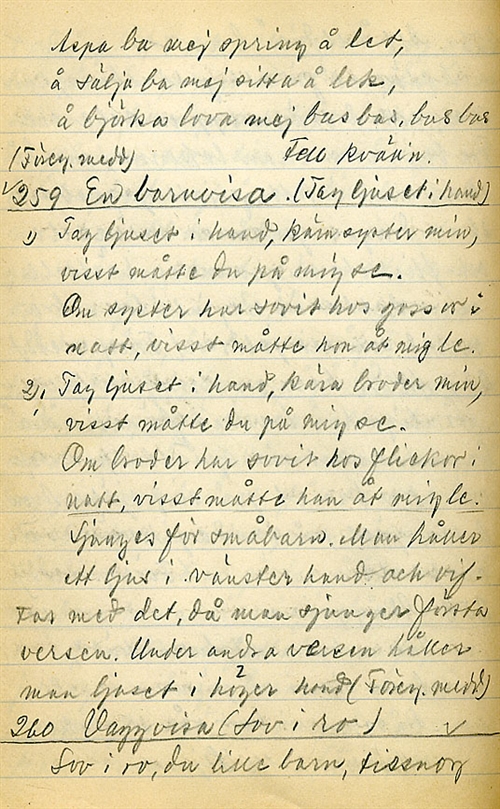 Aspa ba mej spring å let,
å sälja ba mej sitta å lek,
å björka lova mej bas bas, bas bas
(Föreg. medd) Fell kväin.
√259 En barnvisa. (Tag ljuset i hand)
1) Tag ljuset i hand, kära syster min,
visst måtte du på mig se.
Om syster har sovit hos gossar i
natt, visst måtte hon åt mig le.
2), Tag ljuset i hand, kära broder min,
visst måtte du på mig se.
Om broder har sovit hos flickor i
natt, visst måtte han åt mig le.
Sjunges för småbarn. Man håller
ett ljus i vänster hand och vif-
tar med det, då man sjunger första
versen. Under andra versen håller
man ljuset i höger hand (Föreg. medd)
260 Vaggvisa (Sov i ro) √
Sov i ro, du lille barn,